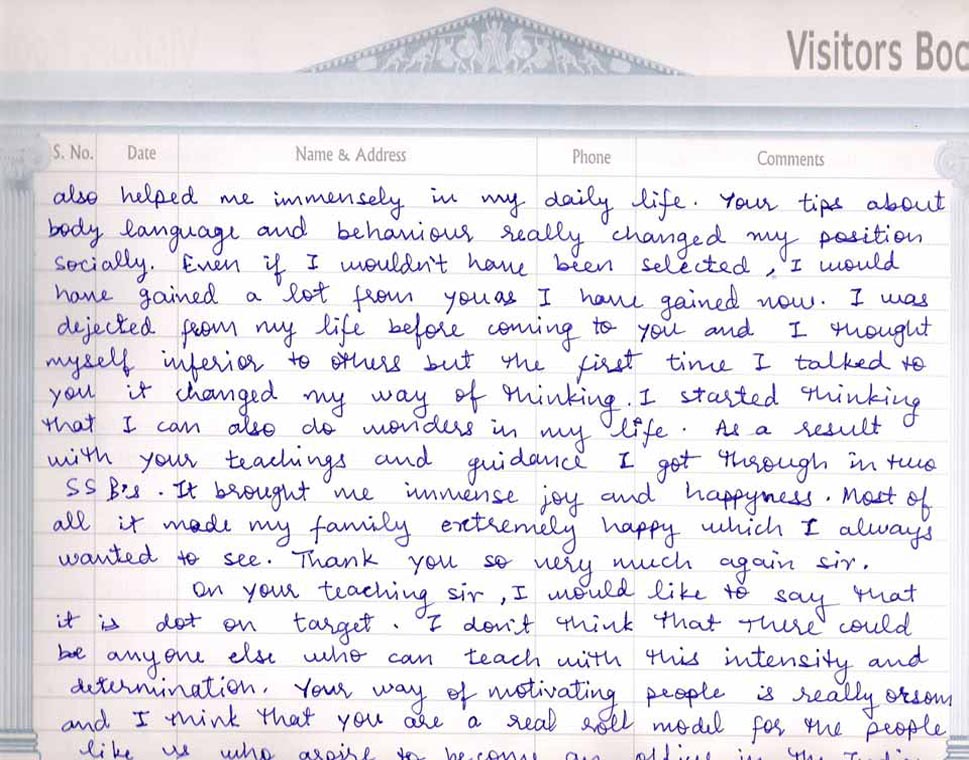 Visitors Boo
S. No. Date Name & Address Phone Comments
also helped me immensely in my daily life. Your tips about
body language and behaviour really changed my position
socially. Even if I wouldn't have been selected, I would
have gained a lot from you as I have gained now. I was
dejected from my life before coming to you and I thought
myself inferior to others but the first time I talked to
you it changed my way of thinking. I started thinking
that I can also do wonders in my life. As a result
with your teachings and guidance I got through in two
SSB's. It brought me immense joy and happyness. Most of
all it made my family extremely happy which I always
wanted to see. Thank you so very much again sir.
On your teaching sir, I would like to say that
it is dot on target. I don't think that there could
be anyone else who can teach with this intensity and
determination. Your way of motivating people is really orsom
and I think that you are a real roll model for the people
like us who aspire to become an officer in the